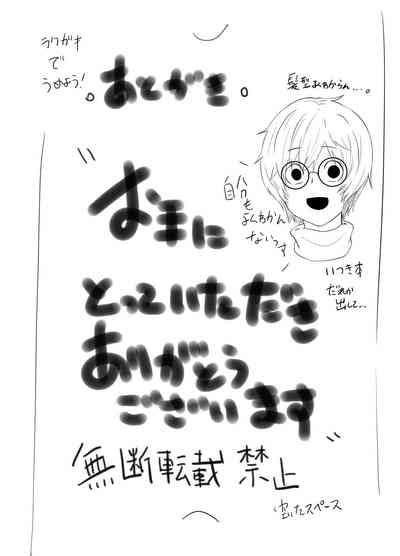 ラクガキ
で
うめよう!
。あとがき。
髪型よくわからん…。
自分も
よくわかん
ないっす
いつき本
だれか
出して…
〝お手に
とっていただき
ありがとう
ございます〟
無断転載禁止
空いたスペース